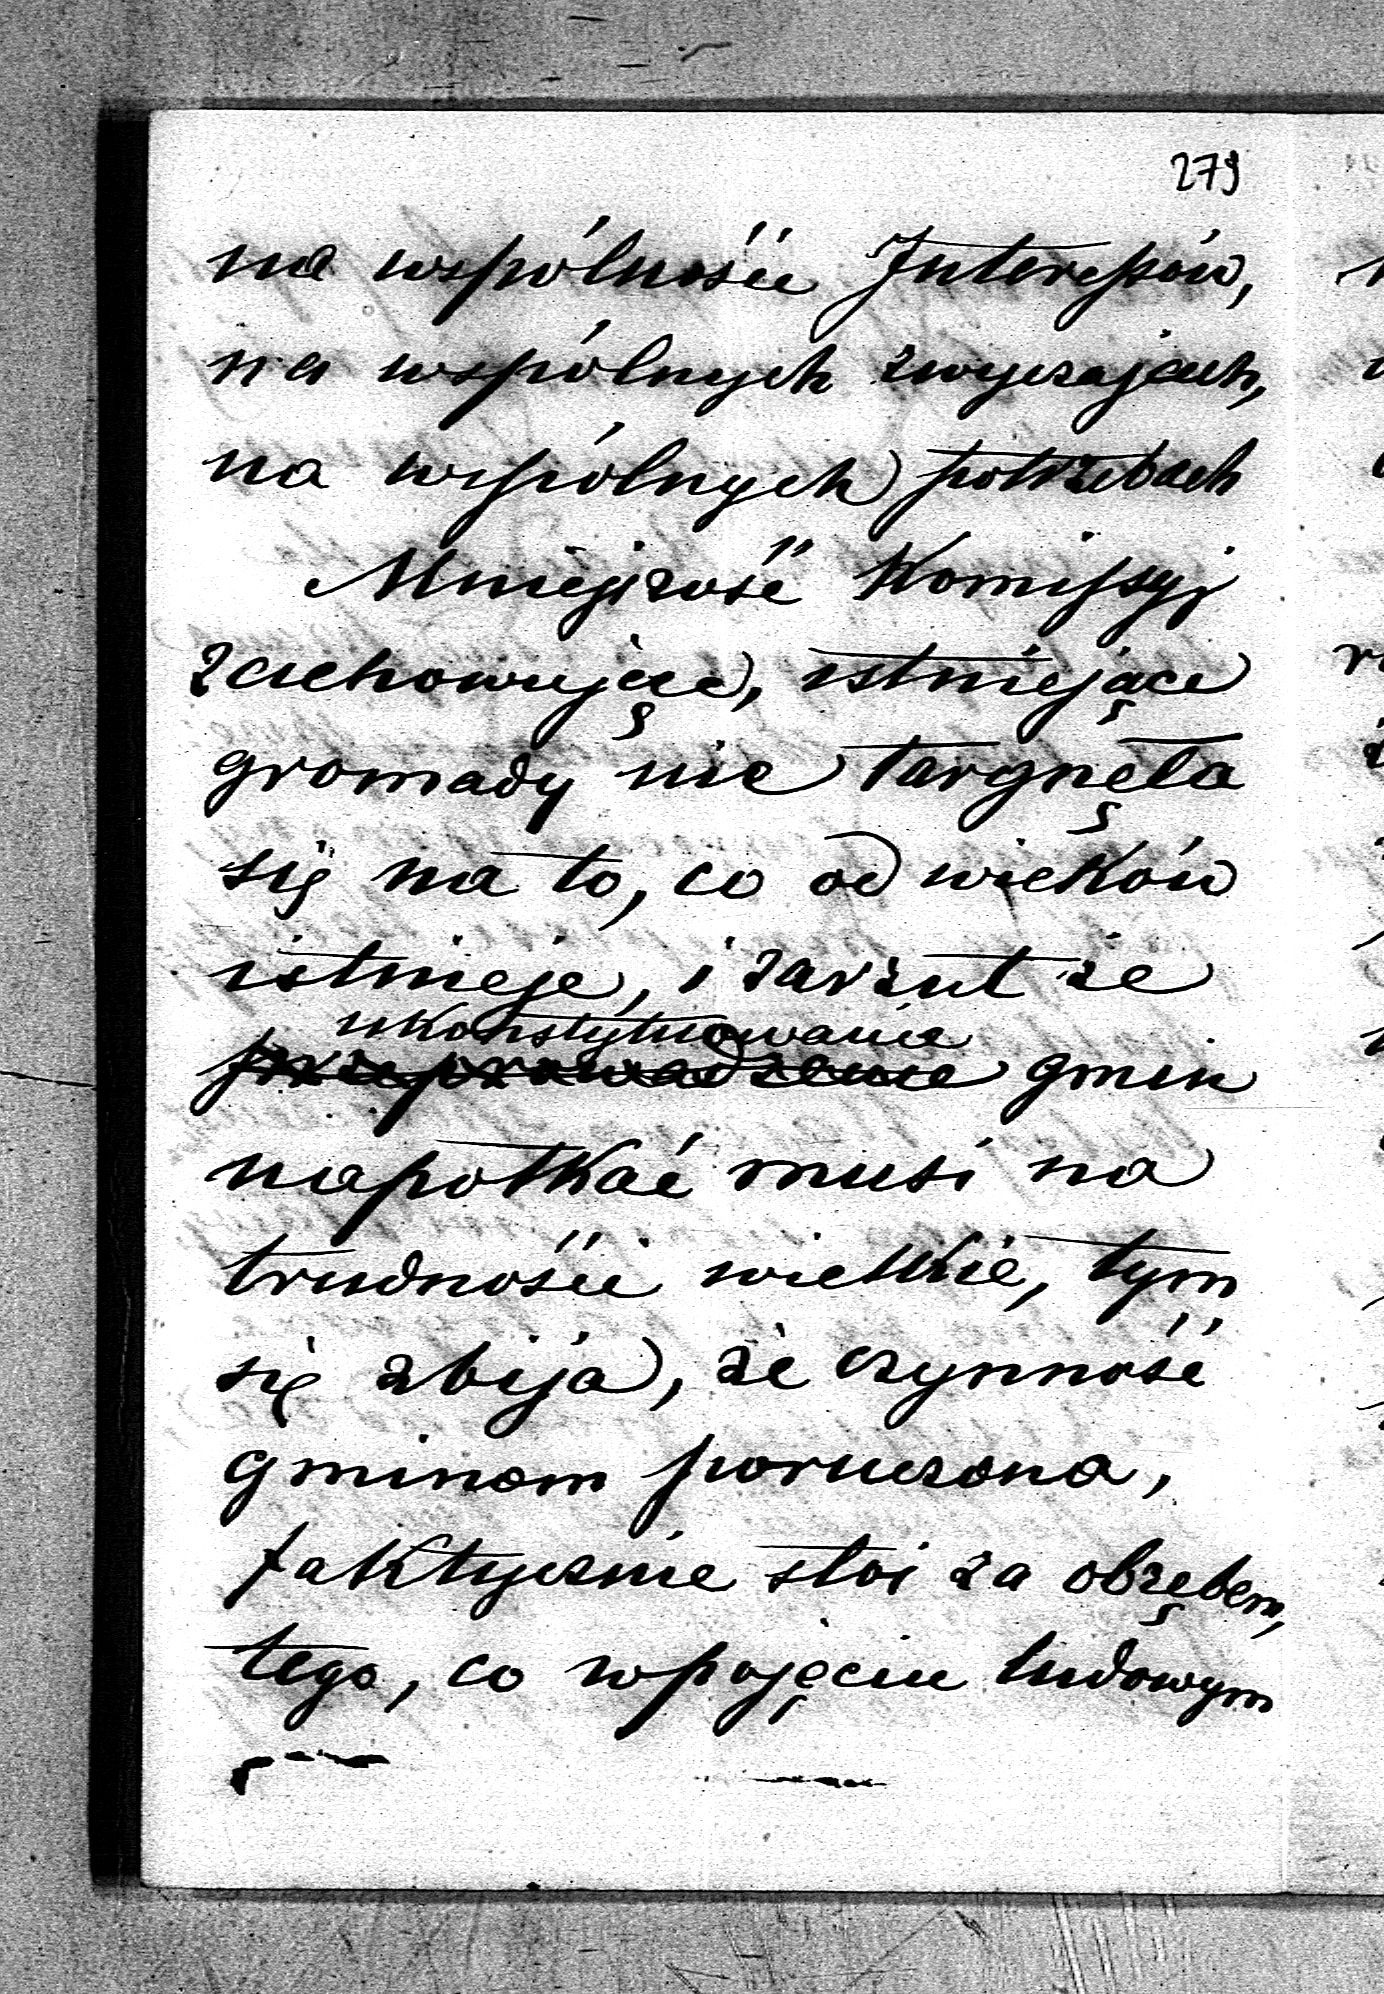 279
na wspólności Interessów,
na wspólnych zwyczajach,
na wspólnych potrzebach
Mniejszość Komissyj
zachowując, istniejące
gromady nie targnęła
się na to, co od wieków
istnieje, i zarzut że
ukonstytuowanie
przeprowadzenie gmin
napotkać musi na
trudności wielkie, tym
się zbija, że czynność
gminom poruczona,
faktycznie stoi za obrębem,
tego, co w pojęciu ludowym